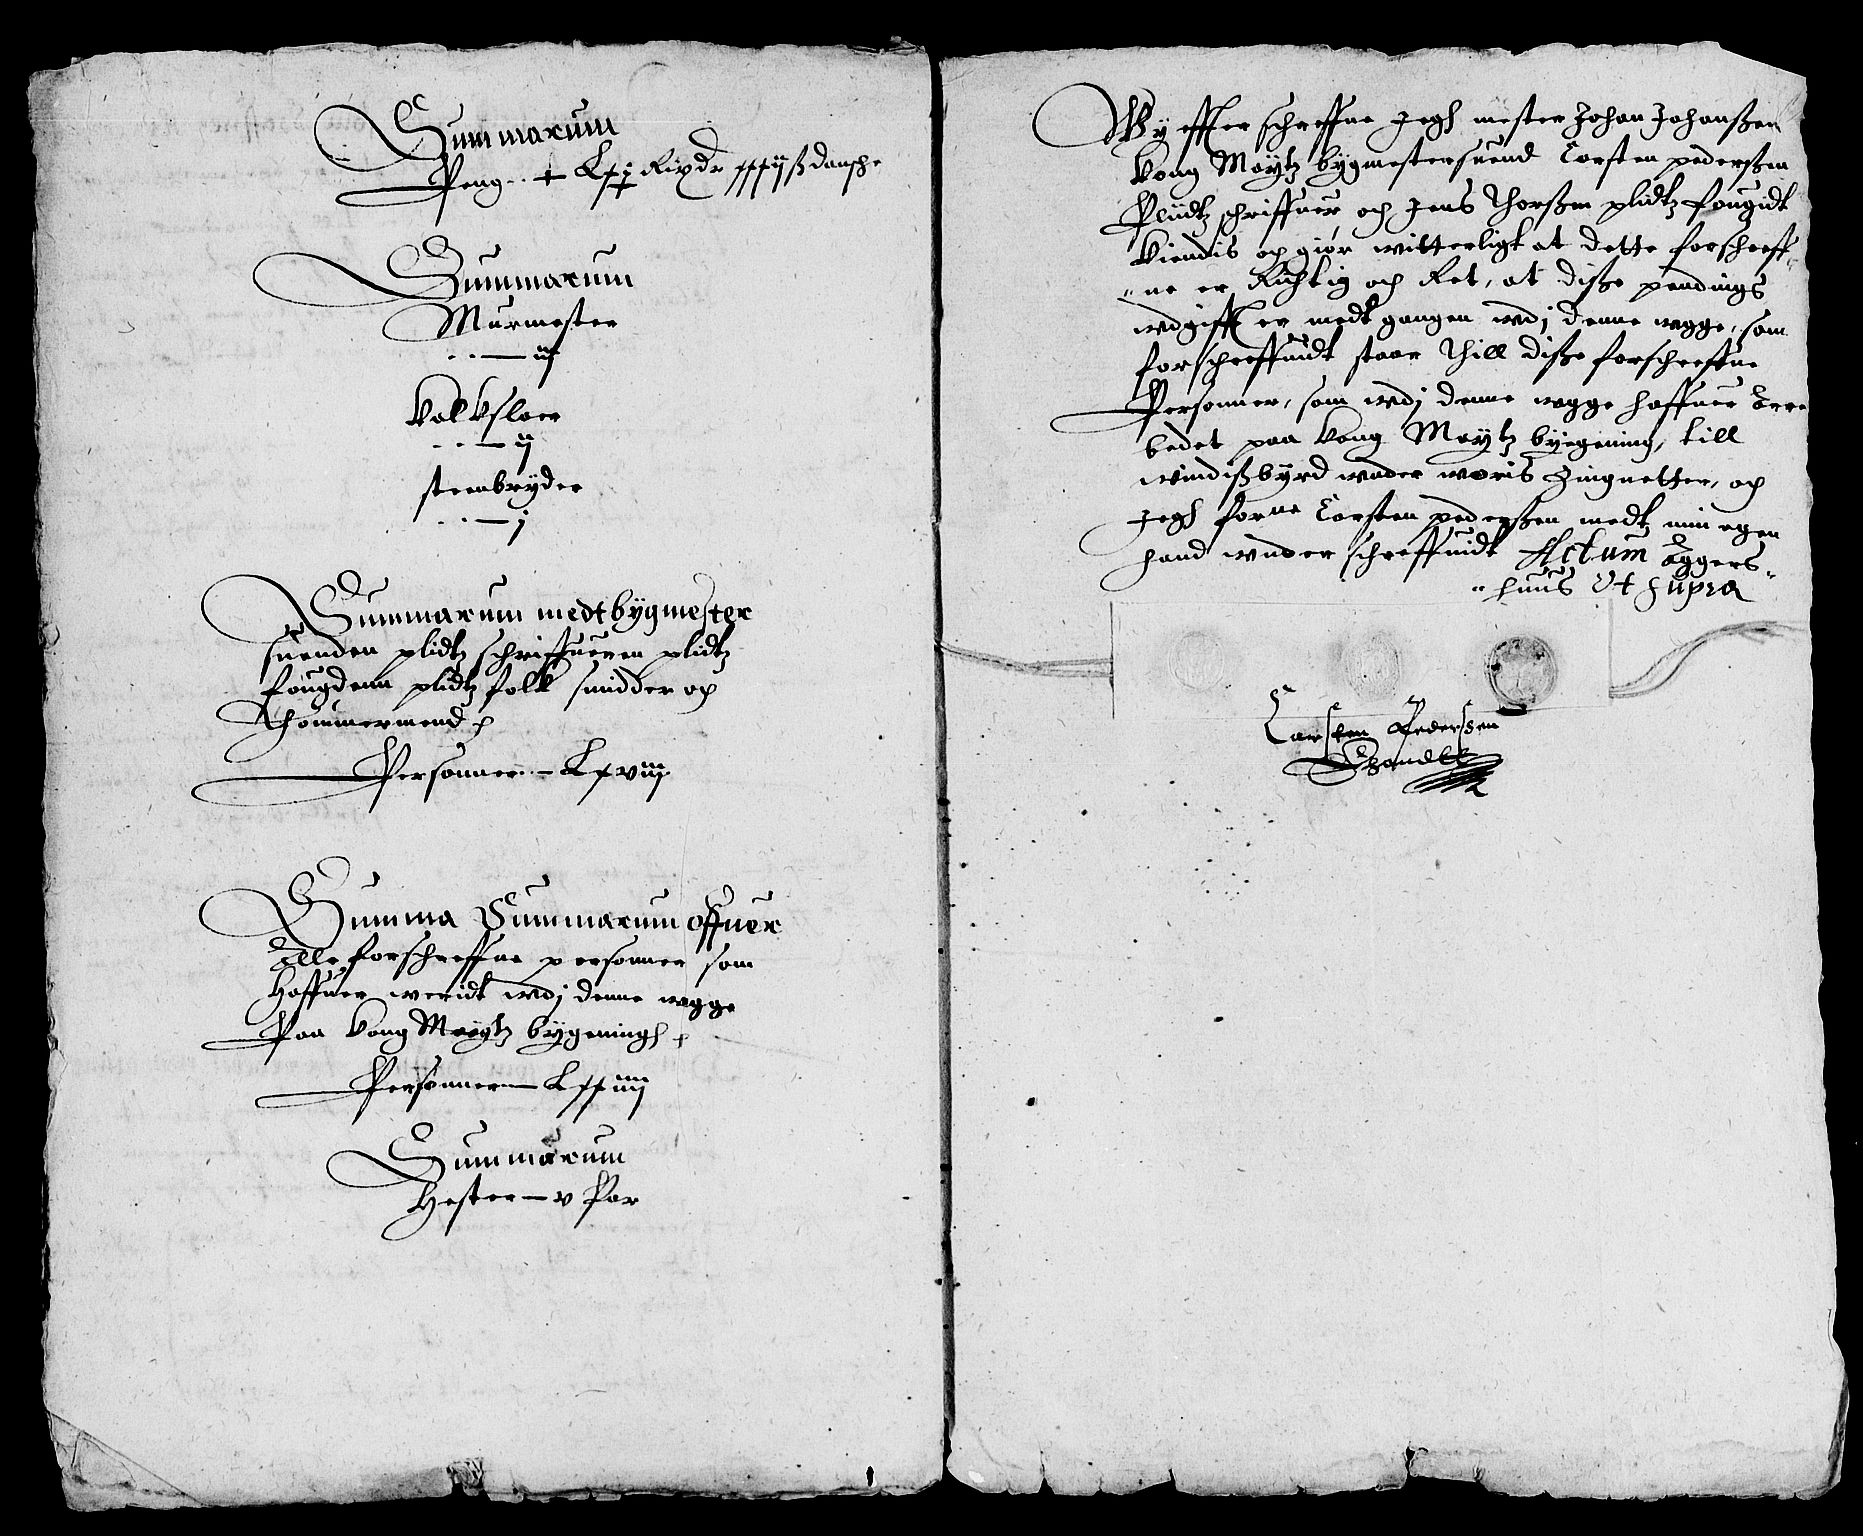 Summarum
Peng - Lxj Rixdr xxxijß dansche
Summarum
Murmester
- iij
Kalkslaer
- ij
steenbryder
- j
Summarum medt bÿgmester
suenden plidtz schriffueren plidtz
fougdenn plidtz folk smidder och
Thommermend
Personner - Lxviij
Summa Summarum offuer
Alle forschreffne personner som
haffuer weridt wdj denne wgge
Paa Kong Maÿtz bÿgeningh
Personner - Lxxiiij
Summarum
Hester - v Par
Wy effter schreffne Jegh mester Johan Johanßen
Kong Maÿtz bÿgmestersuend Carsten pederßen
Plidtz schriffuer och Jens Thorßen plidtz fougidt
Kiendis och giør witterligt at dette forschreff-
ne er Richtig och Ret, at diße pendings
wdgifft er medt gangen wdj denne wgge, som
forschreffuidt staar Thill diße forschreffne
Personner, som wdj denne wgge haffuer Arre
bedet paa Kong Maÿtz bÿegening, till
windißbÿrd wnder woris Zingnetter, och
Jegh forne Carsten pederßen medtz min egen
hand wnder schreffuidt Actum Aggers-
huus Vt supra
Carsten Pederßen